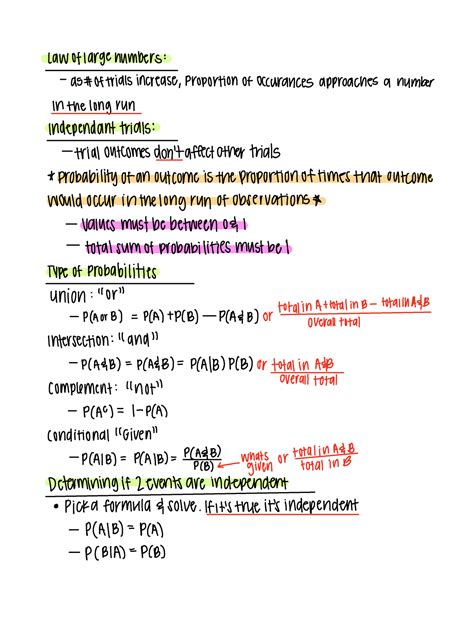 Law of large numbers:
– as # of trials increase, proportion of occurances approaches a number
in the long run
Independant trials:
– trial outcomes don't affect other trials
* Probability of an outcome is the proportion of times that outcome
would occur in the long run of observations *
– values must be between 0 & 1
– total sum of probabilities must be 1
Type of Probabilities
Union : "or"
– P(A or B) = P(A) + P(B) – P(A & B) or total in A + total in B – total in A & B / overall total
Intersection: "and"
– P(A & B) = P(A & B) = P(A|B) P(B) or total in A & B / overall total
Complement: "not"
– P(Aᶜ) = 1 – P(A)
Conditional "Given"
– P(A|B) = P(A|B) = P(A & B) / P(B) ← whats given or total in A & B / total in B
Determining if 2 events are independent
• Pick a formula & solve. If it's true it's independent
– P(A|B) = P(A)
– P(B|A) = P(B)